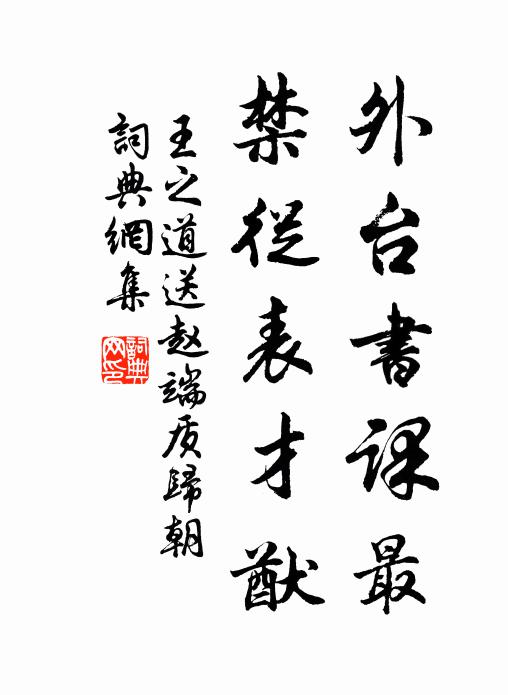 外台書課最
禁從表才猷
王之道送赵端质歸朝
詞典網集
詞典网印